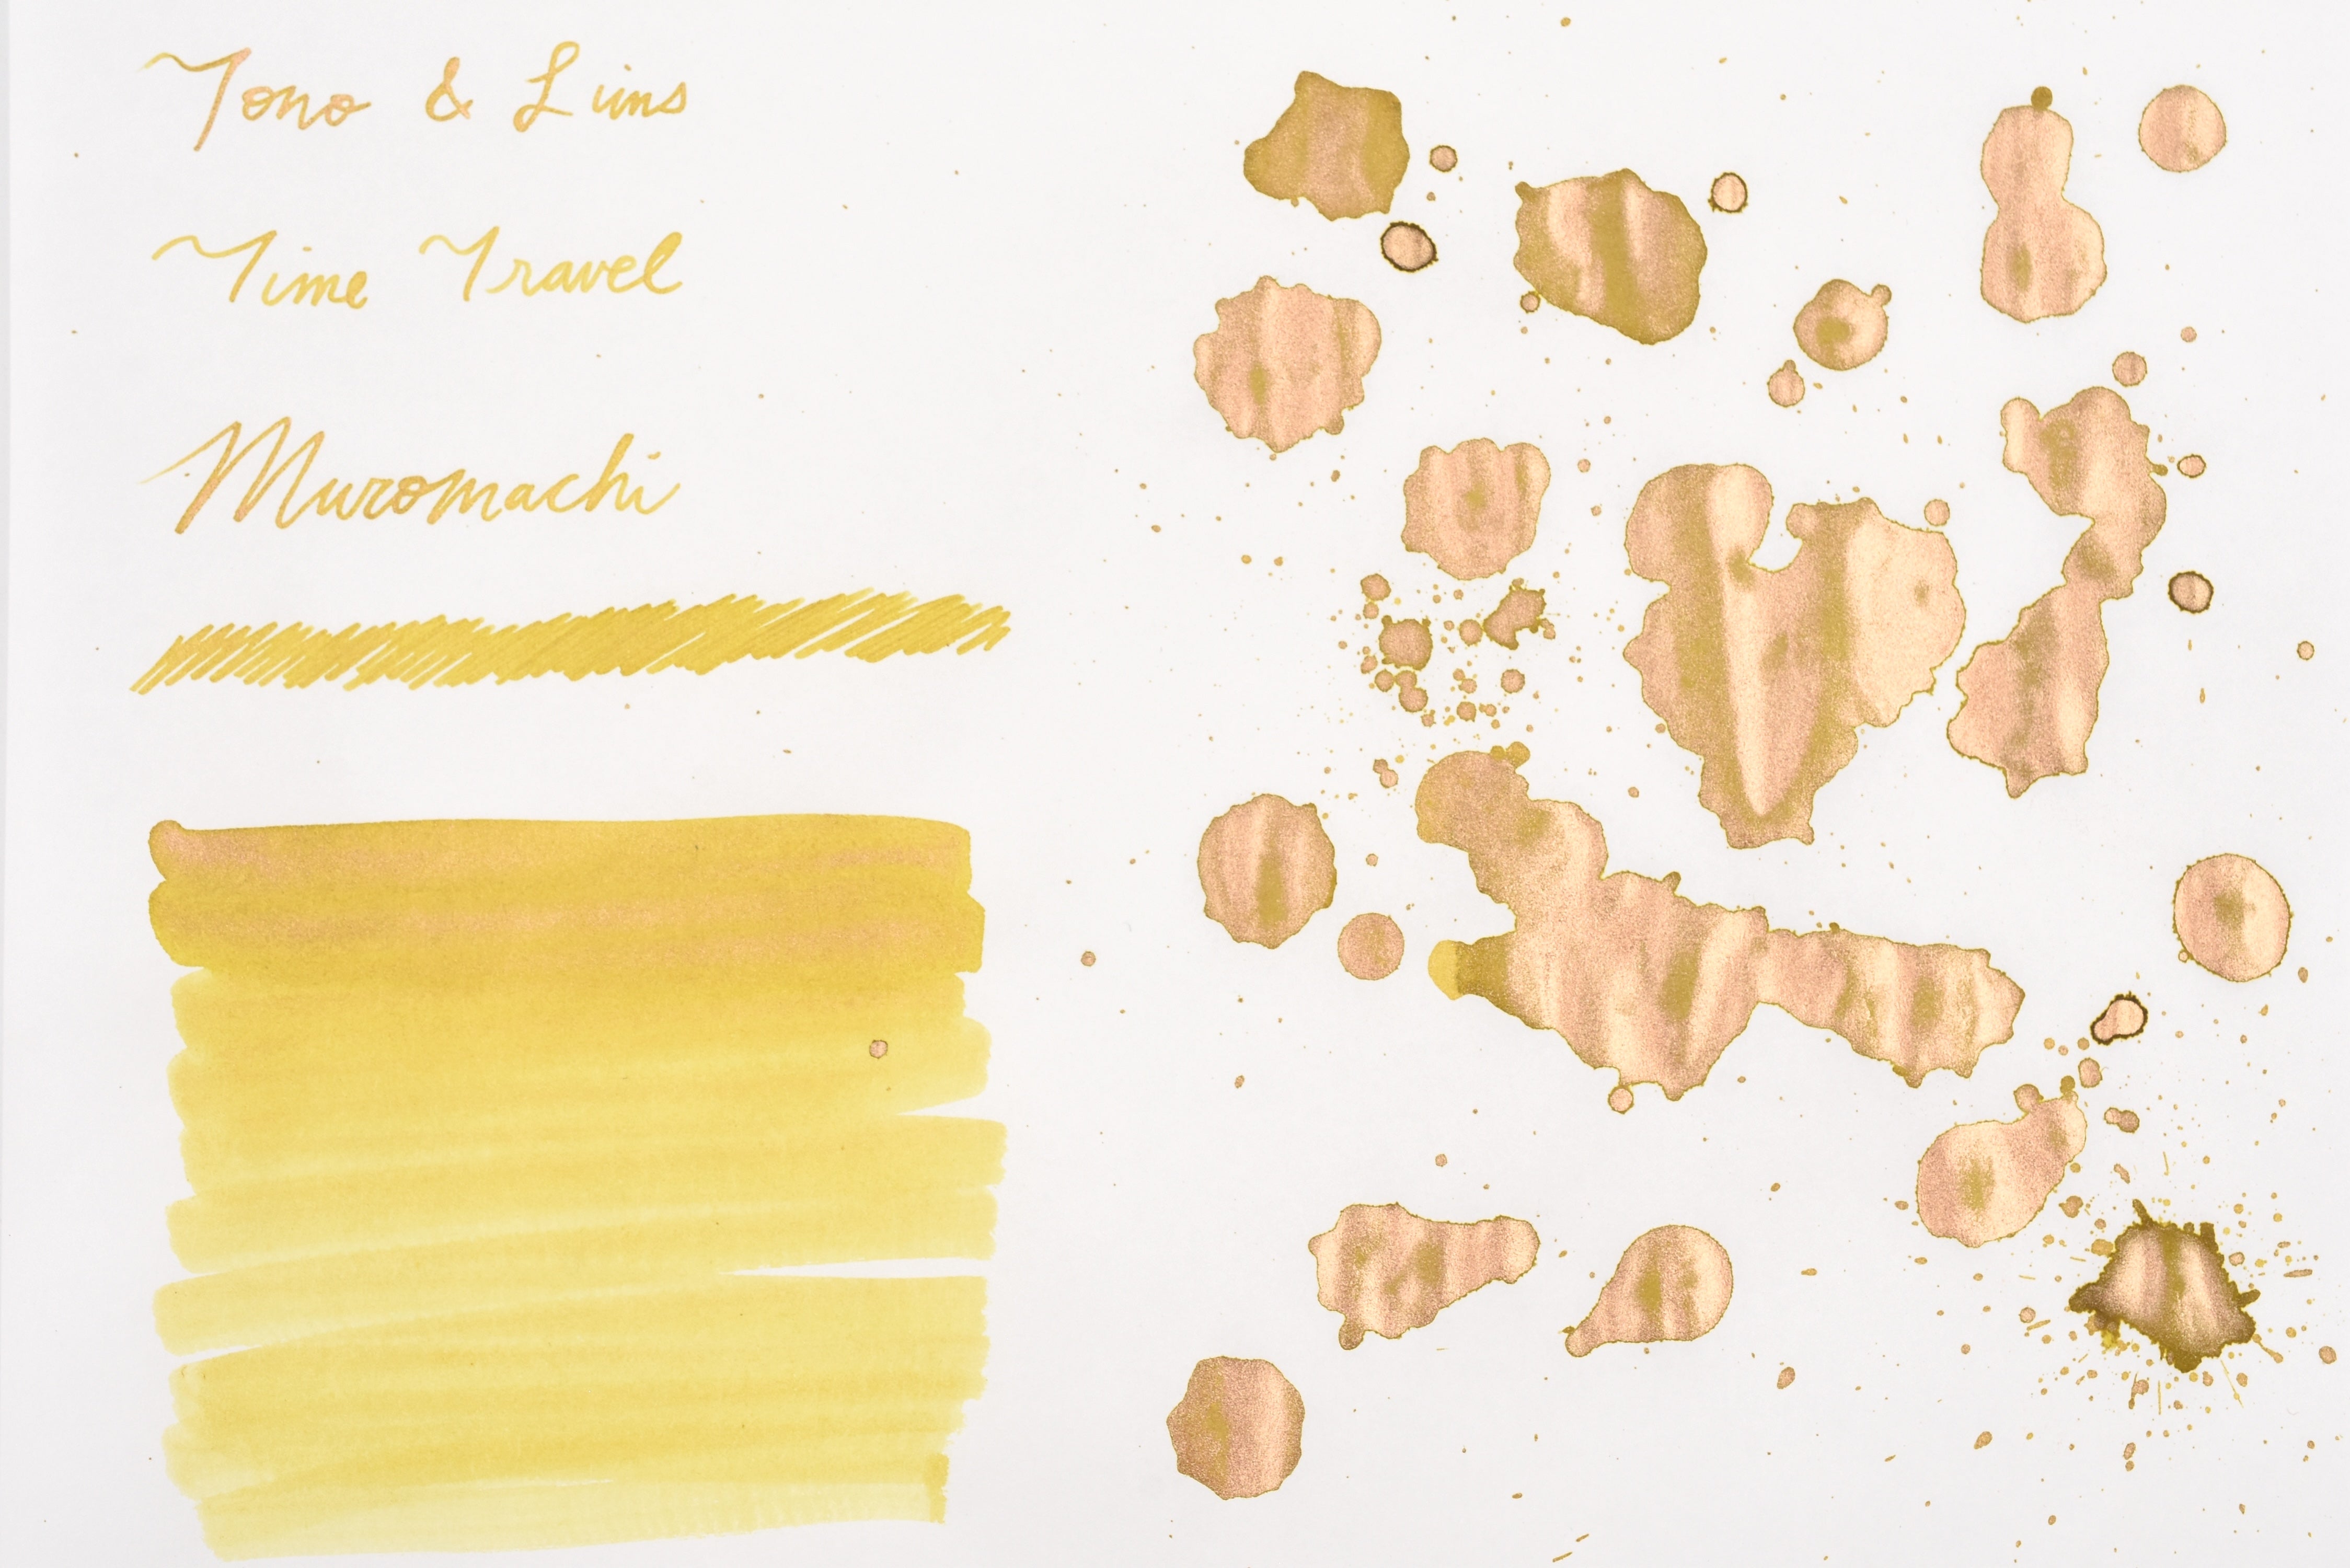 Tono & Lims
Time Travel
Muromachi